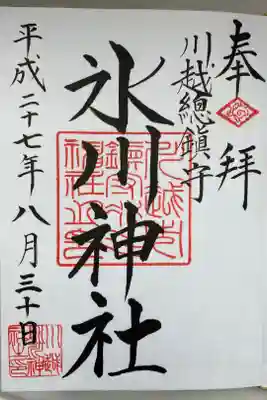 奉拝
川越總鎮守
氷川神社
平成二十七年八月三十日